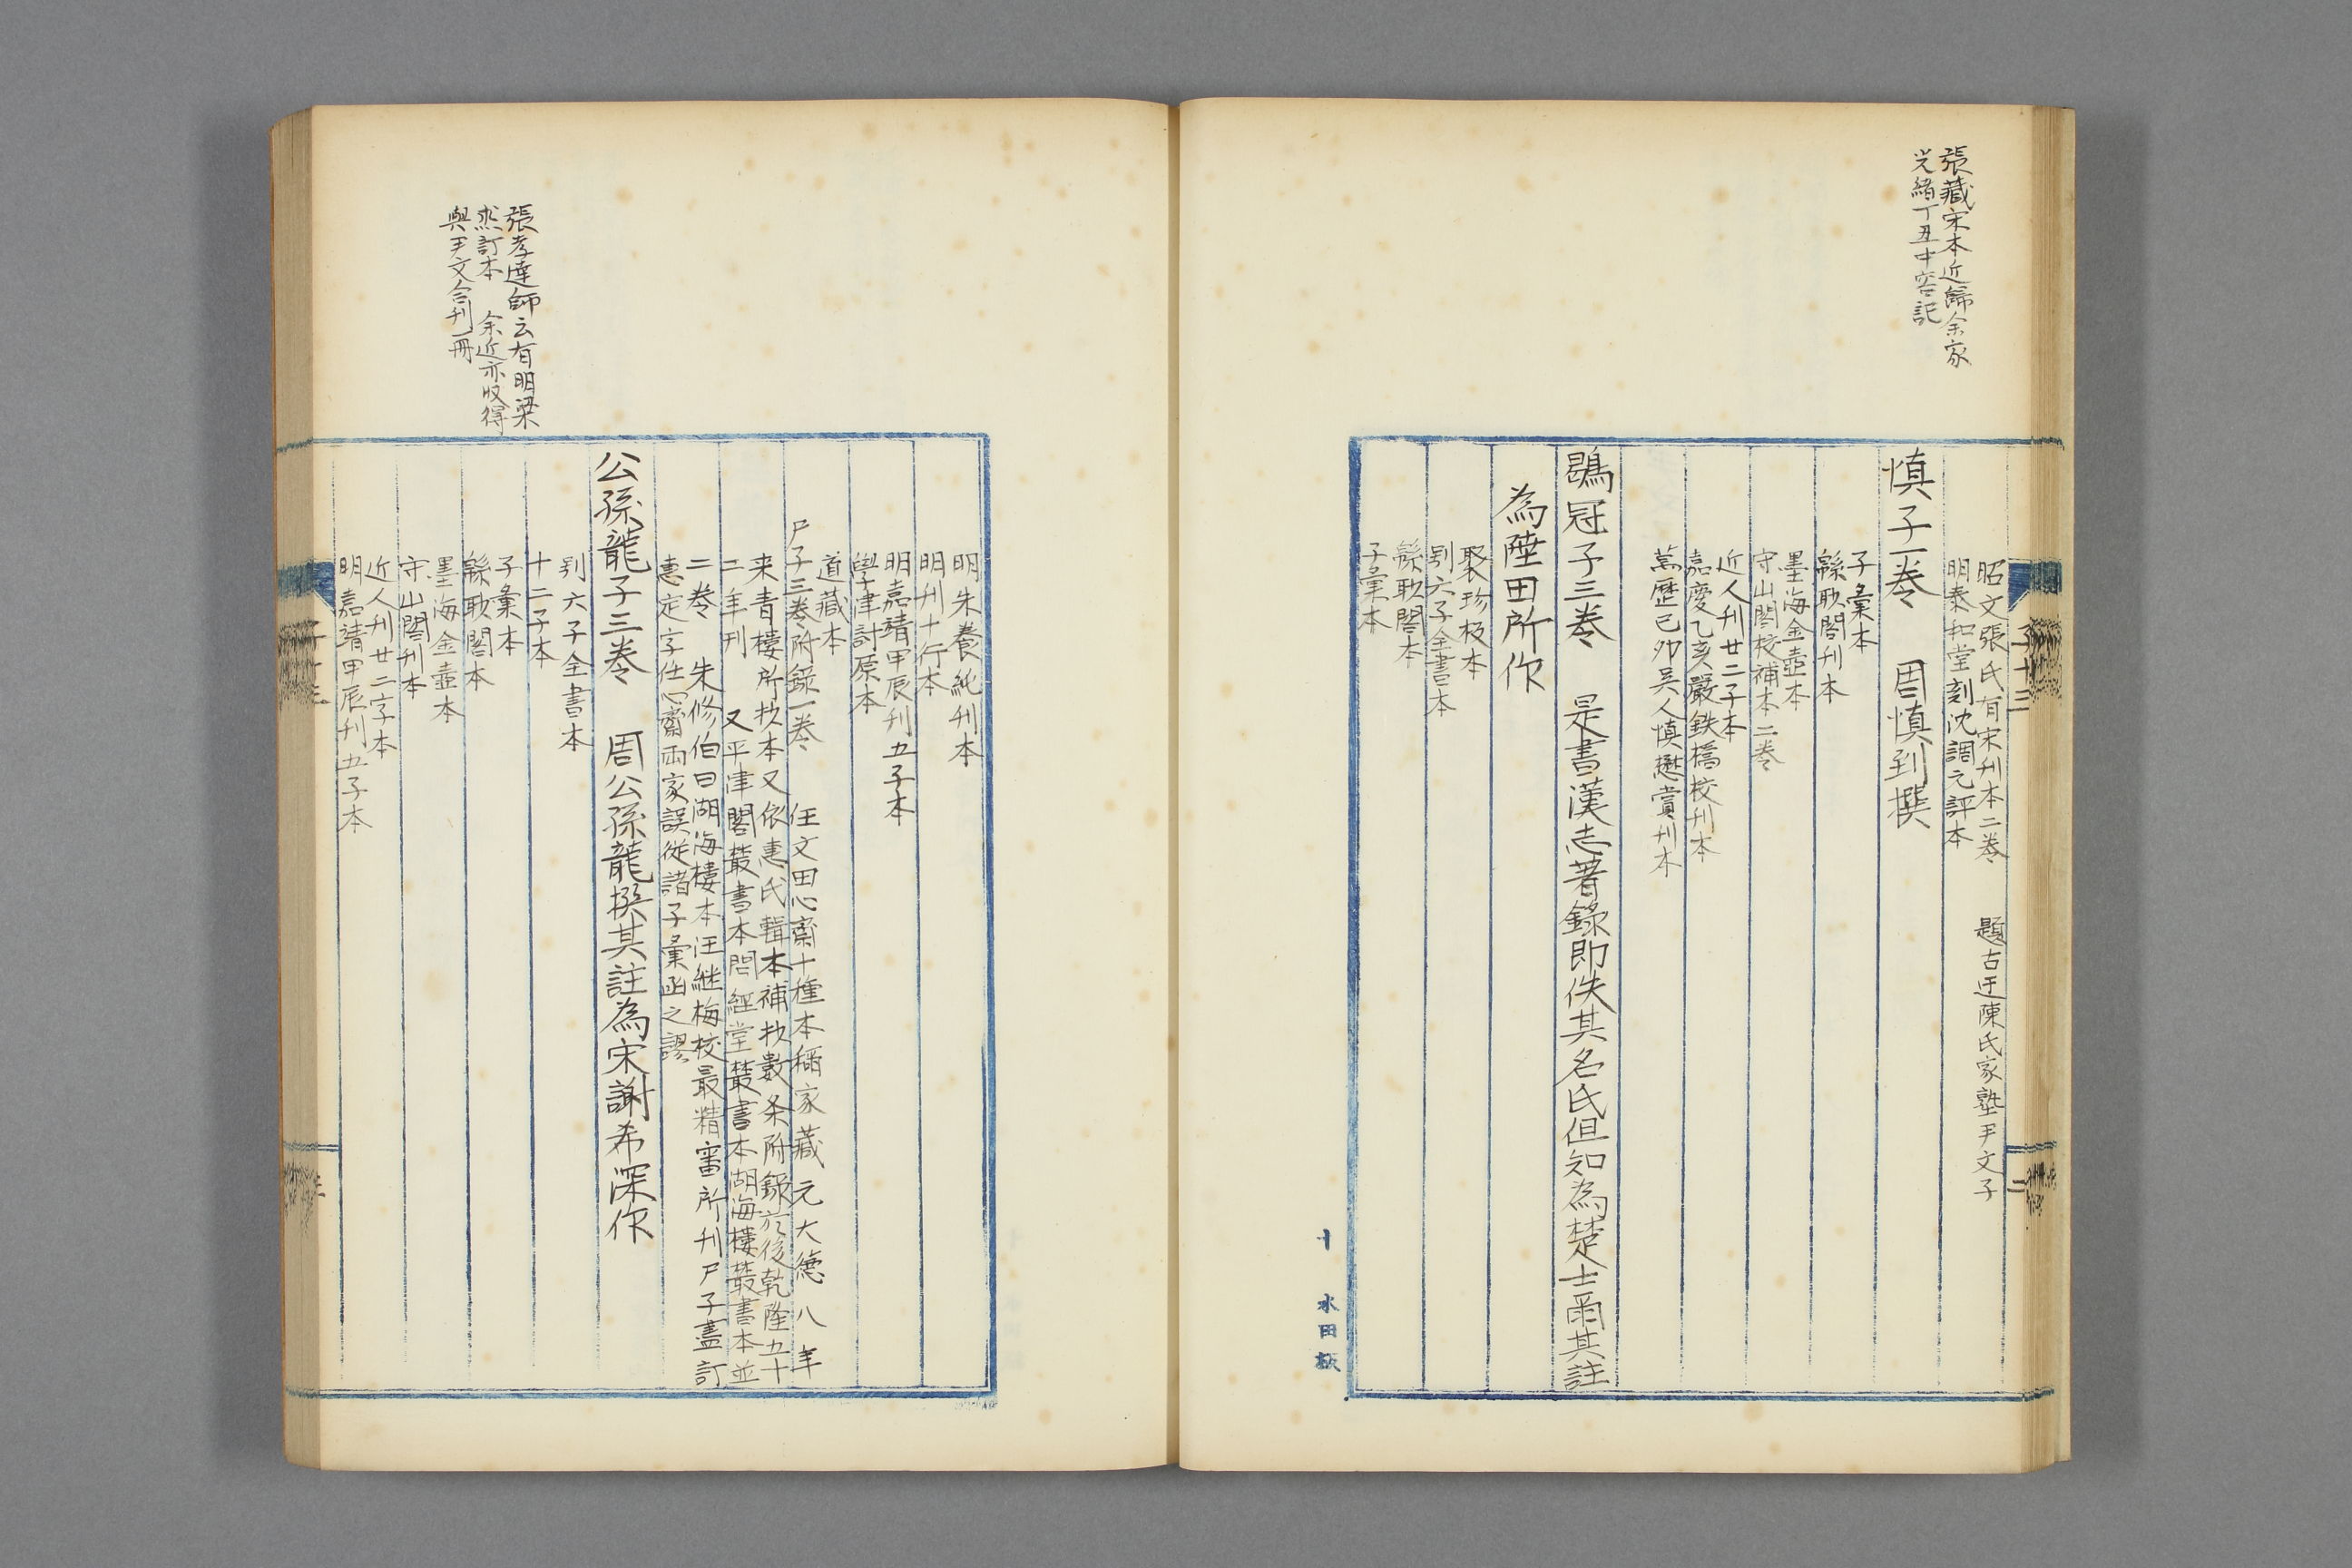 張藏宋本近歸余家
光緒丁丑中容記
子十三
二
昭文張氏有宋刊本二卷　題古迂陳氏家塾尹文子
明泰和堂刻沈調元評本
慎子一卷　周慎到撰
子彙本
緜眇閣刊本
墨海金壺本
守山閣校補本二卷
近人刊廿二子本
嘉慶乙亥嚴鉄橋校刊本
萬歷己卯吳人慎懋賞刊本
鶡冠子三卷　是書漢志著錄即佚其名氏但知為楚人士爾其註
為陸田所作
聚珍板本
別六子全書本
緜眇閣本
子彙本
十　水田板
明朱養純刊本
明刊十行本
明嘉靖甲辰刊五子本
學津討原本
道藏本
尸子三卷附錄一卷　任文田心齋十種本稱家藏元大德八年
来青樓所抄本又依惠氏輯本補抄數条附錄於後乾隆五十
二年刊　又平津閣叢書本問經堂叢書本湖海樓叢書本並
二卷　朱修伯曰湖海樓本汪継梅校最精審所刊尸子盡訂
惠定宇任心齋兩家誤從諸子彙函之謬
公孫龍子三卷　周公孫龍撰其註為宋謝希深作
別六子全書本
十二子本
子彙本
緜眇閣本
墨海金壺本
守山閣刊本
近人刊廿二字本
明嘉靖甲辰刊五子本
張孝達師云有明梁
杰訂本　余近亦收得
與尹文合刊一冊